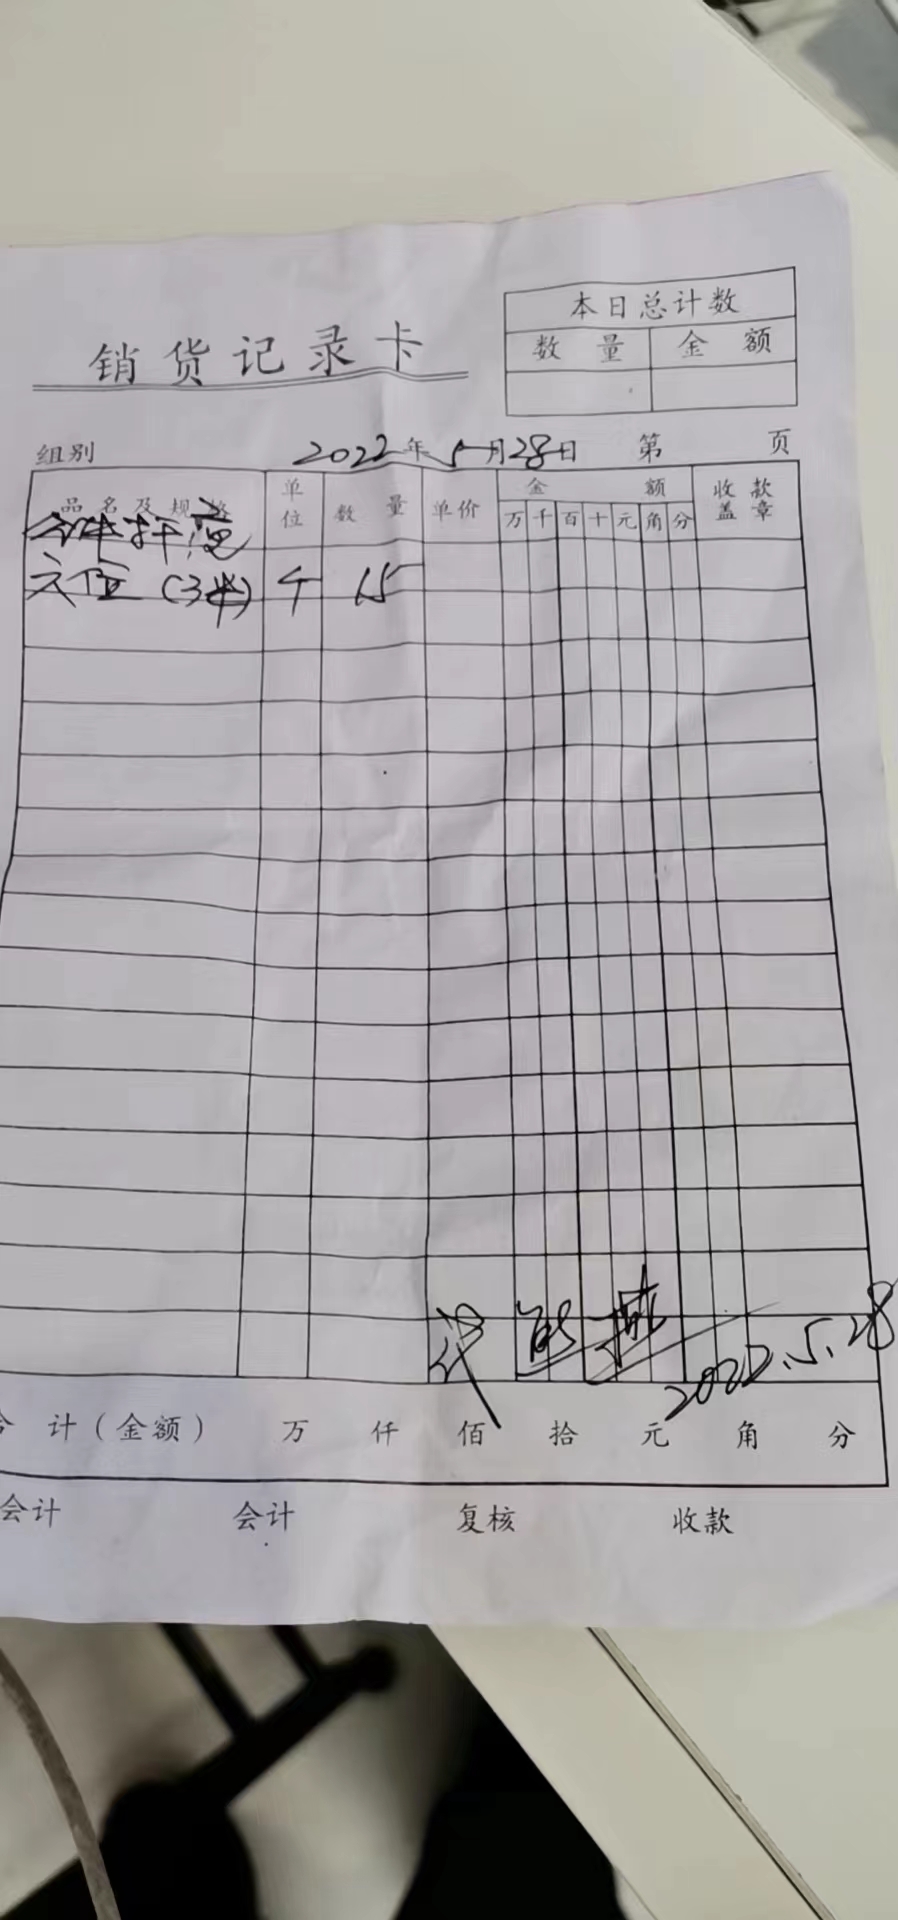 本日总计数
数量 金额
销货记录卡
组别 2022年5月28日 第 页
品名及规格 单位 数量 单价 金额 收款盖章
万 千 百 十 元 角 分
六位(3米) 个 15
2022.5.28
合计(金额) 万 仟 佰 拾 元 角 分
会计 会计 复核 收款